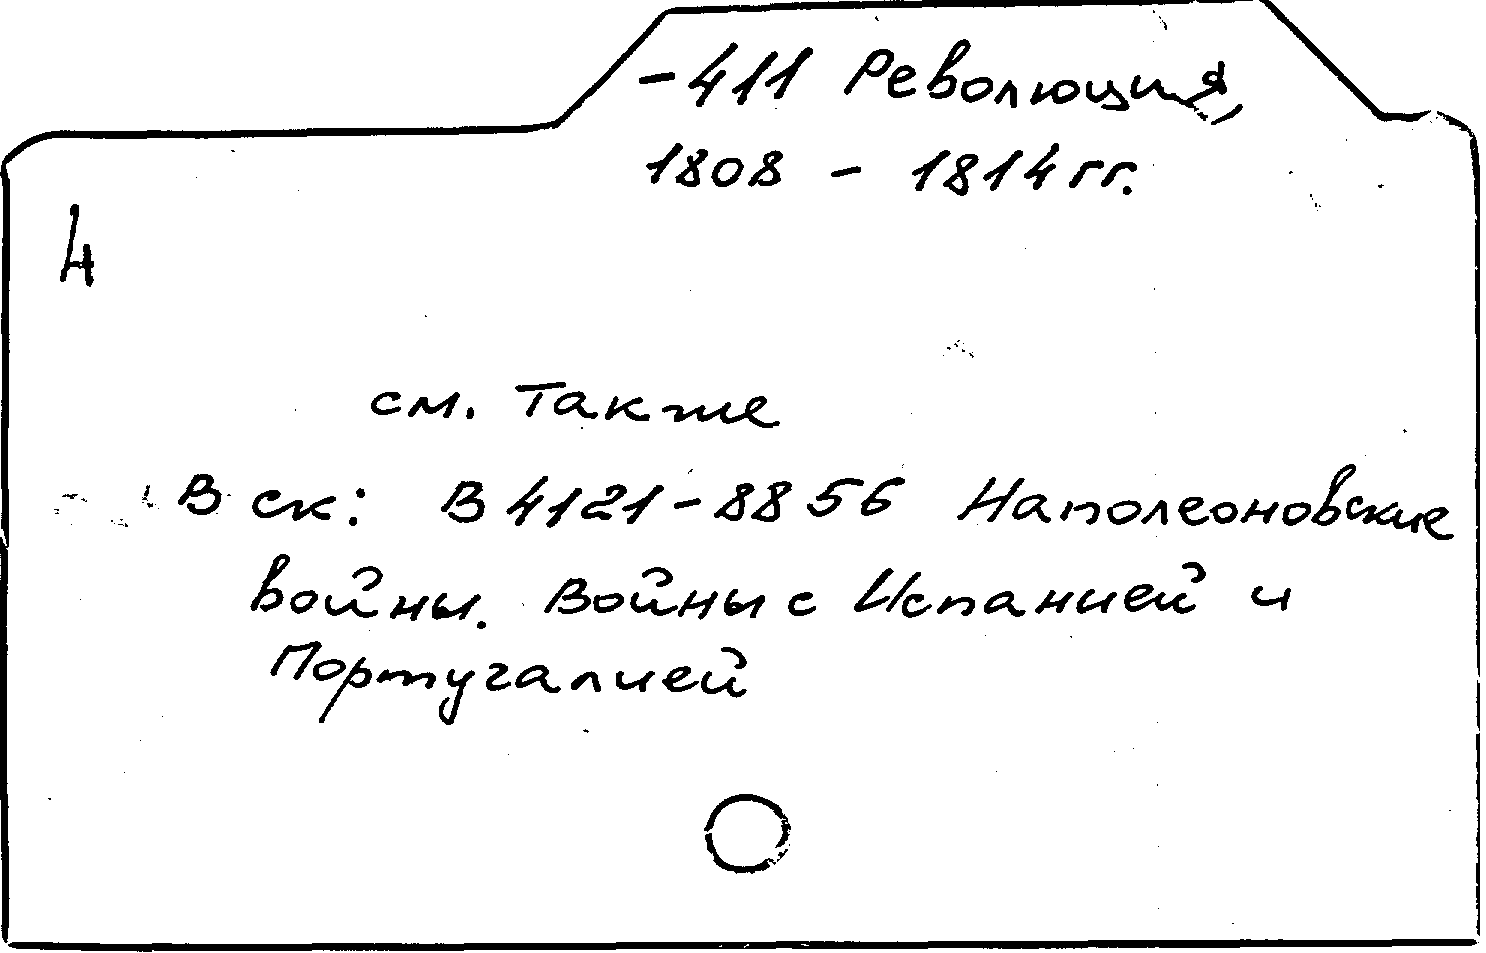 -411 Революция,
1808 - 1814 гг.
4
см. также
В ск: В 4121-8856 Наполеоновские
войны. Войны с Испанией и
Португалией